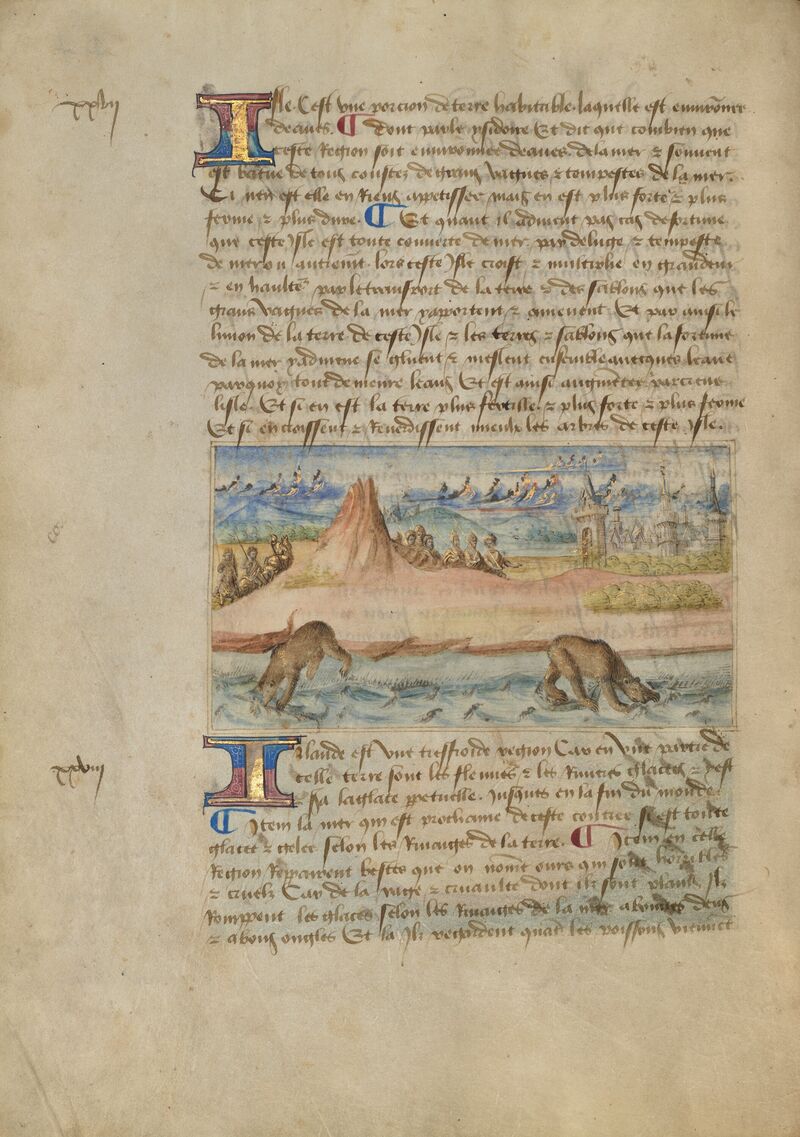 xxvii
Isle. C'est une porcion de terre habitable. laquelle est environnee
deaues. ¶ Dont parle ysidore Et dit que combien que
ceste Region soit environnee deaues. de la mer ⁊ souvent
est batue de tous costez de grans vagues ⁊ tempestes de la mer.
Si nen est elle en Riens appetissee mais en est plus forte ⁊ plus
ferme ⁊ plus dure. ¶ Et quant il advient par cas de fortune
que ceste Isle est toute couverte de mer par deluge ⁊ tempeste
de mer ou autrement. lors ceste Isle croist ⁊ multiplie en grandeur
⁊ en haulte par le transport de la terre ⁊ des sablons que les
grans vagues de la mer y apportent ⁊ amenent Et par ainsi le
limon de la terre de ceste Isle ⁊ les terres ⁊ sablons que la fortune
de la mer y admene se gluent ⁊ meslent ensemble avecques leaue
parquoy tout demeure leans Et est ainsi augmentee
lisle. Et si en est la terre plus fertille. ⁊ plus forte ⁊ plus ferme
Et si en croissent ⁊ Reverdissent mieulx les arbres de ceste Isle.
xxviii
Islande est une tresfroide region Car en une partie de
celle terre sont les fleuves ⁊ les Rivieres glacees ⁊ y est
la glace perpetuelle. jusques en la fin du monde.
¶ Item la mer qui est prochaine de ceste contree si est toute
glacee ⁊ gelee selon les Rivaiges de la terre. ¶ Item en celle
Region Repairent bestes que on nome ours qui sont horribles
⁊ cruelz Car de la rage ⁊ cruaulte dont ilz sont plains Ilz
Rompent les glaces selon les Rivaiges de la mer a bonnes dens
⁊ a bons ongles Et la Ilz regardent quant les poissons viennent